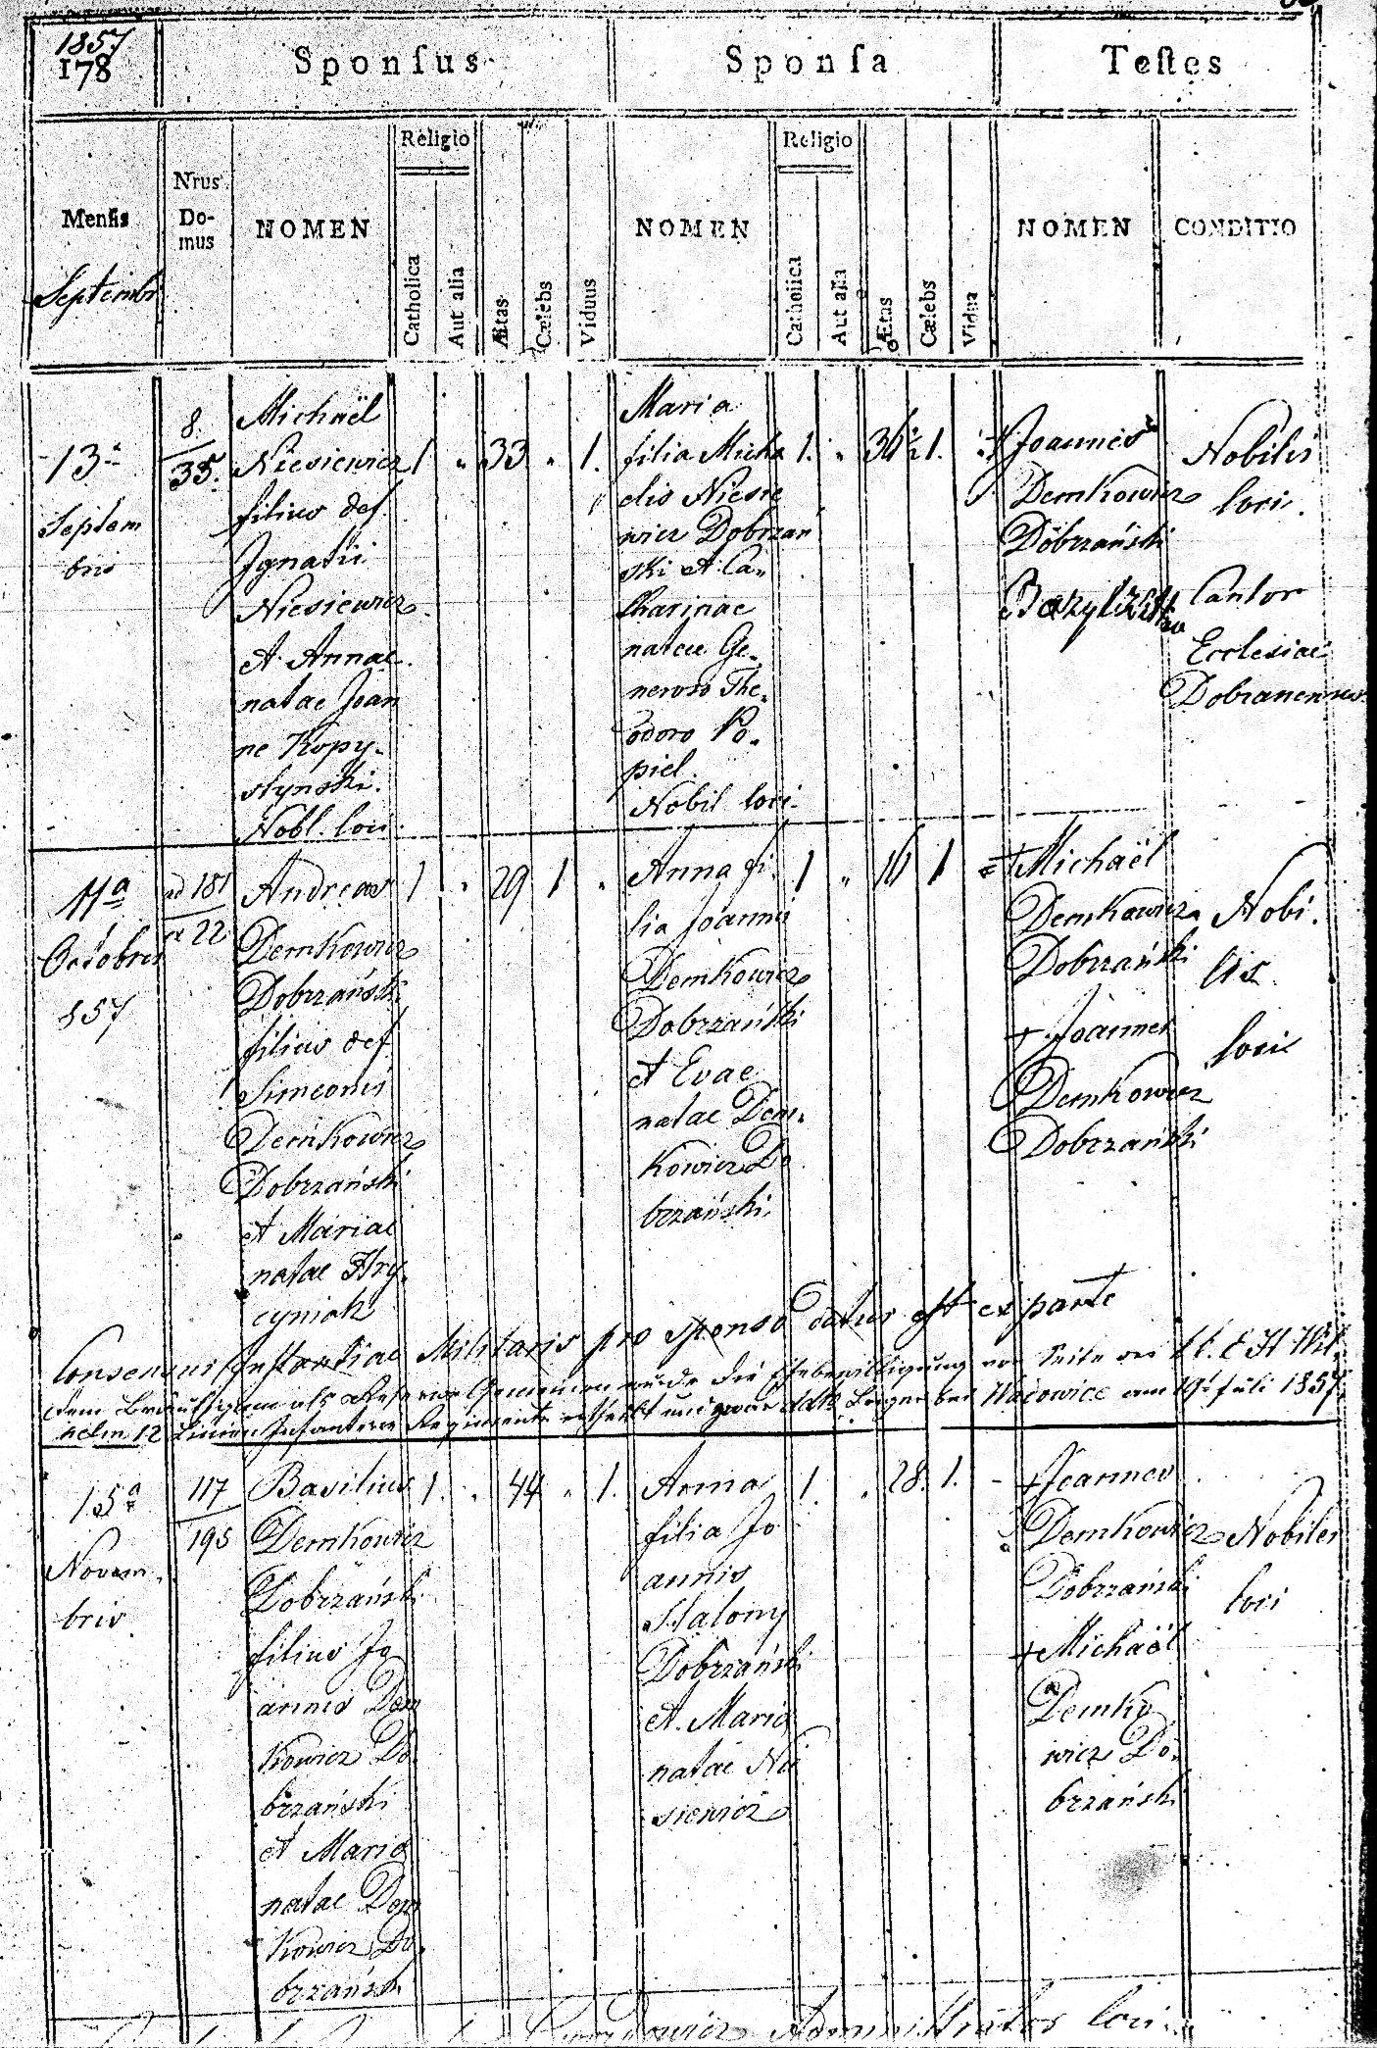 1857
178
Sponſus
Sponſa
Teſtes
Menſis
Septembr
Nrus
Do-
mus
NOMEN
Religio
Catholica
Aut alia
Ætas
Cælebs
Viduus
NOMEN
Religio
Catholica
Aut alia
Ætas
Cælebs
Vidua
NOMEN
CONDITIO
13a
Septem
bris
8.
35.
Michaël
Niesiewicz
filius def.
Ignatii
Niesiewicz
et Annae
natae Joan
ne Kopy-
stynski.
Nobl. loci
1 " 33 " 1.
Maria
filia Micha
elis Niesie
wicz Dobrzań
ski et Ca-
tharinae
natae Ge-
neroso The-
odoro Po-
piel.
Nobil loci
1. " 36 1/2 1.
+ Joannes
Demkowicz
Dobrzański
Bazyl
Nobiles
loci.
Cantor
Ecclesiae
11a
Octobris
857
ad 181
22
Andreas
Demkowicz
Dobrzański
filius def
Simeonis
Demkowicz
Dobrzański
et Mariae
natae Hry-
cyniak
1 " 29 1 "
Anna fi-
lia Joannis
Demkowicz
Dobrzański
et Evae
natae Dem-
kowicz Do
brzański.
1 " 16 1
+ Michaël
Demkowicz
Dobrzański
+ Joannes
Demkowicz
Dobrzański
Nobi-
les
loci
Consensus Instantiae Militaris pro sponso datus est ex parte
dem Bräutigam als Reserve Gemeinen wurde die Ehebewilligung von Seite des
helm 12 Linien Infanterie Regiments ertheilt und zwar Lager bei Wadowice am 19t Juli 1857
15a
Novem-
bris
117
195
Basilius
Demkowicz
Dobrzański
filius Jo
annis Dem
kowicz Do-
brzański
et Maria
natae Dem
kowicz Do-
brzański
1. " 44 " 1.
Anna
filia Jo
annis
Halony
Dobrzański
et Maria
natae Nie
siewicz
1. " 28. 1. -
+ Joannes
Demkowicz
Dobrzański
+ Michaël
Demko
wicz Do-
brzański
Nobiles
loci
Administrator loci